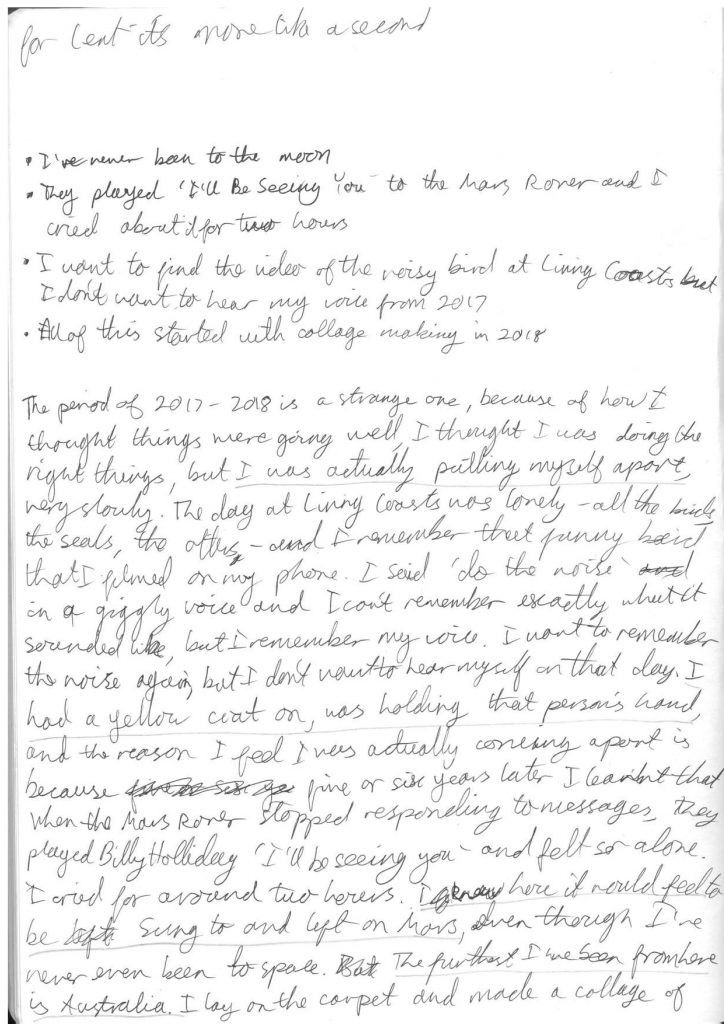 for Lent - its more like a second
• I've never been to the moon
• They played 'I'll Be Seeing You' to the Mars Rover and I
cried about it for two hours
• I want to find the video of the noisy bird at Living Coasts but
I don't want to hear my voice from 2017
• All of this started with collage making in 2018
The period of 2017-2018 is a strange one, because of how I
thought things were going well, I thought I was doing the
right things, but I was actually pulling myself apart,
very slowly. The day at Living Coasts was lonely - all the birds,
the seals, the otters, - and I remember that funny bird
that I filmed on my phone. I said 'do the noise' and
in a giggly voice and I can't remember exactly what it
sounded like, but I remember my voice. I want to remember
the noise again, but I don't want to hear myself on that day. I
had a yellow coat on, was holding that person's hand,
and the reason I feel I was actually coming apart is
because five or six years later I learnt that
when the Mars Rover stopped responding to messages, they
played Billy Holliday 'I'll be seeing you' and felt so alone.
I cried for around two hours. I know how it would feel to
be left sung to and left on Mars, even though I've
never even been to space. But The furthest I've been from here
is Australia. I lay on the carpet and made a collage of